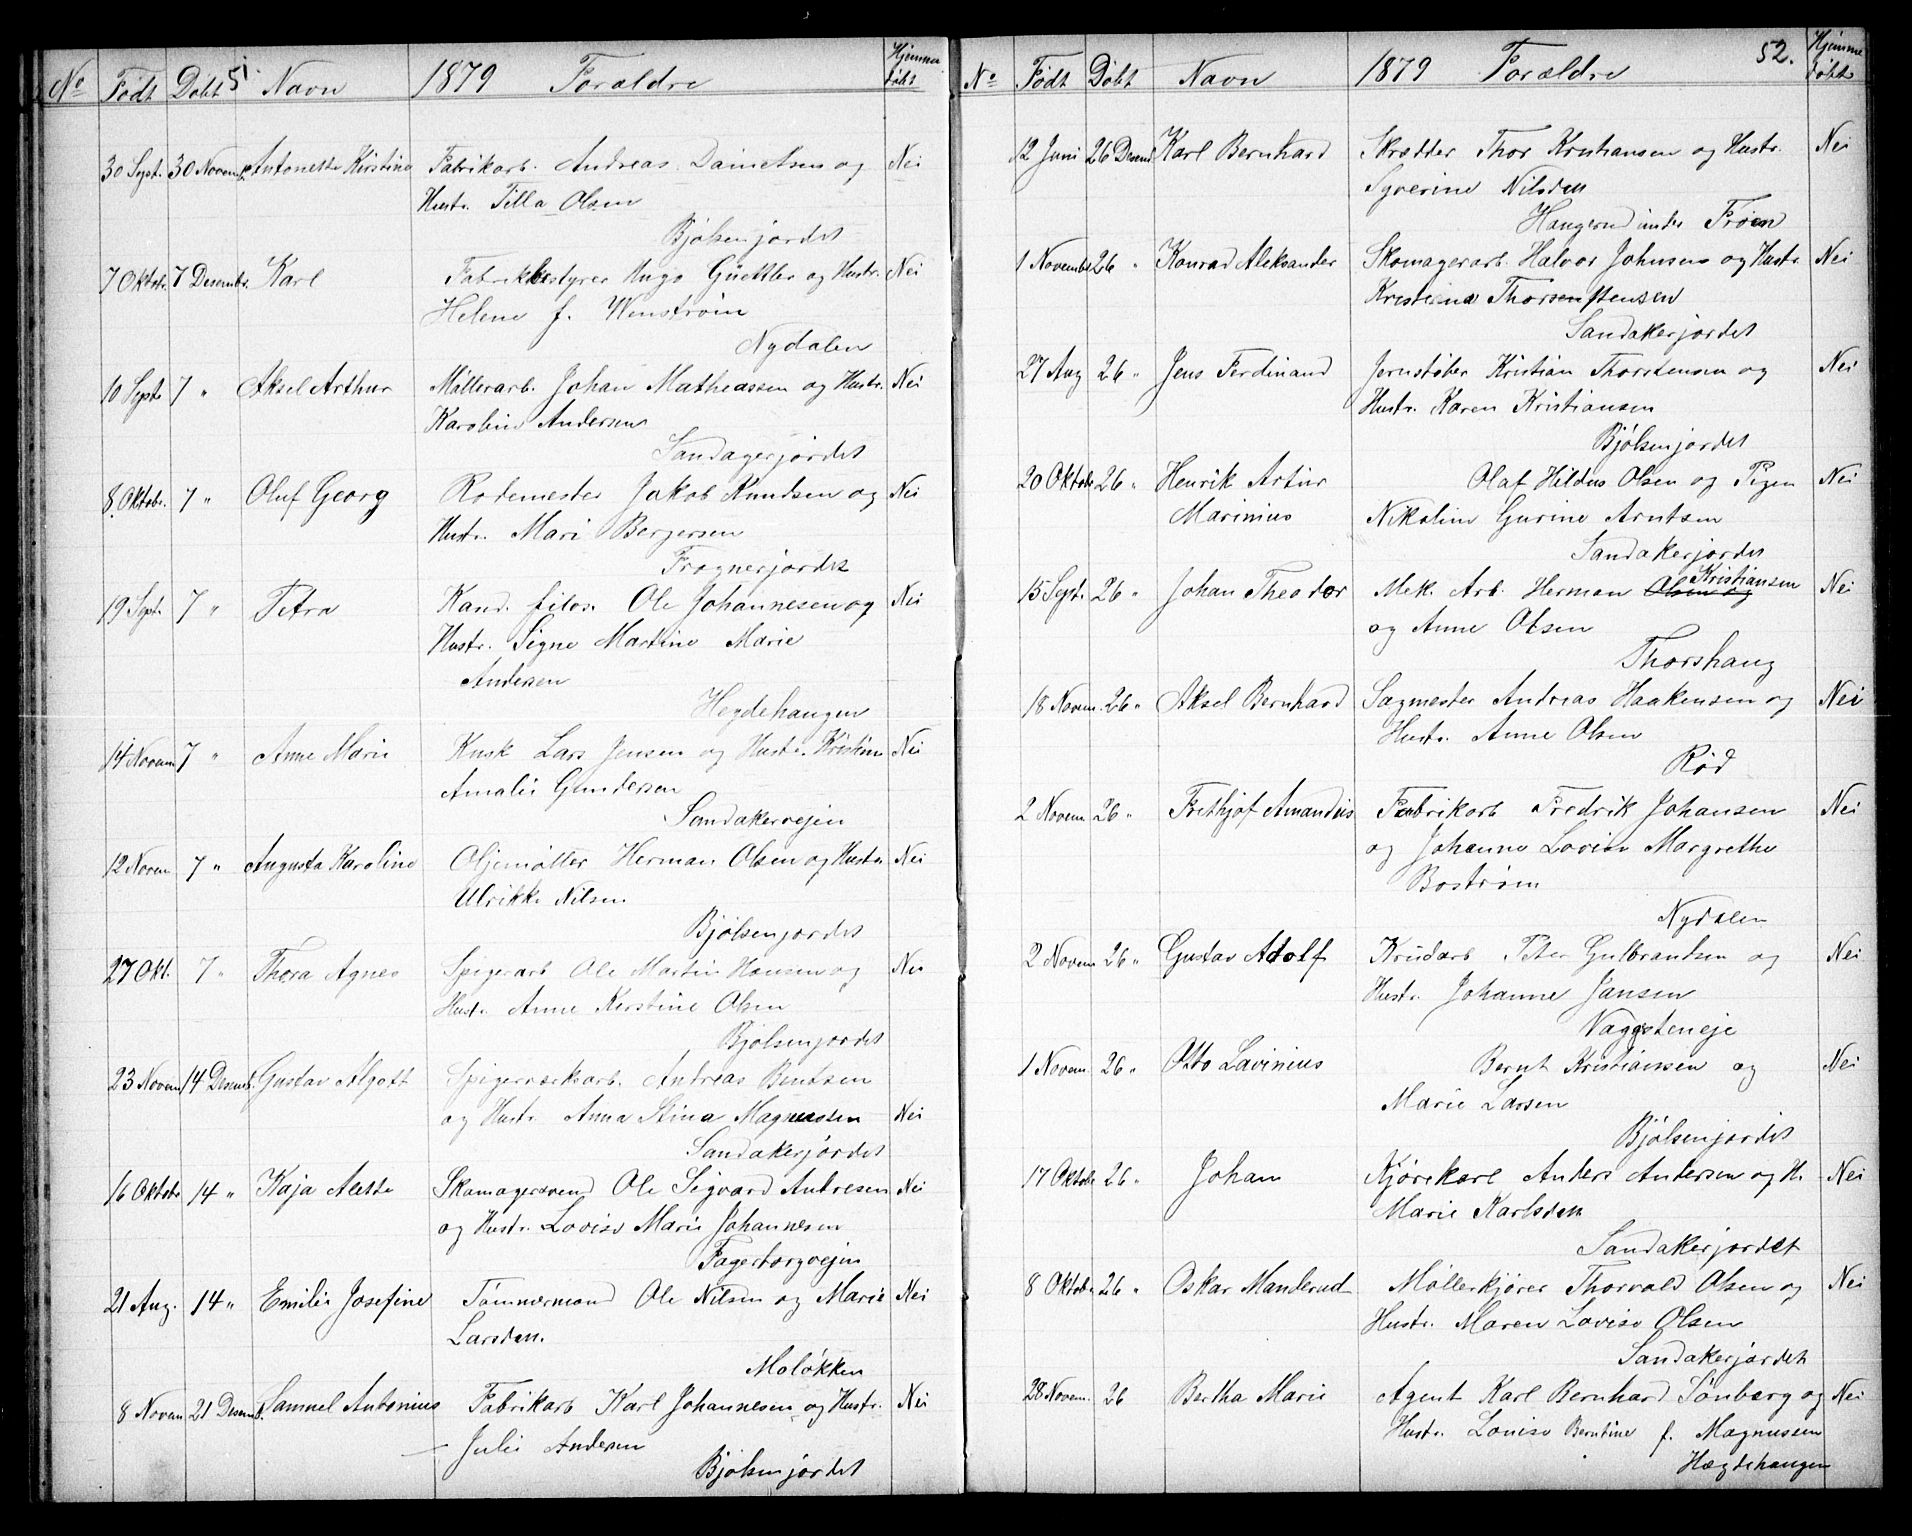 No Født Døbt 51. Navn 1879 Forældre Hjemmedøbt
30 Sept. 30 Novemb. Antonette Kirstine Fabrikarb. Andreas Danielsen og Nei
Hustr. Tilla Olsen
Bjølsenjordet
7 Oktob. 7 Desembr. Karl Fabrikbestyrer Hugo Güettler og Hustr. Nei
Helene f. Wenstrøm
Nydalen
10 Sept. 7 " Aksel Arthur Møllerarb. Johan Matheassen og Hustr. Nei
Karoline Andersen
Sandagerjordet
8. Oktob. 7 " Oluf Georg Rodemester Jakob Knudsen og Nei
Hustr. Mari Bergersen
Frognerjordet
19 Sept. 7 " Petra Kand. filos. Ole Johannesen og Nei
Hustr. Signe Martine Marie
Andersen
Hegdehaugen
14 Novem. 7 " Anne Marie Kusk Lars Jensen og Hustr. Kristine Nei
Amalie Gundersen
Sandakervejen
12 Novem. 7 " Augusta Karoline Oljemøller Herman Olsen og Hustr. Nei
Ulrikke Nilsen
Bjølsenjordet
27 Okt. 7 " Thora Agnes Spigerarb Ole Martin Hansen og Nei
Hustr. Anne Kirstine Olsen
Bjølsenjordet
23 Novem. 14 Desemb. Gustav Algott Spigerværksarb. Andreas Bentsen
og Hustr. Anna Stina Magnussen Nei
Sandakerjordet
16 Oktobr 14 " Kaja Alette Skomagersvend Ole Sigvard Andresen Nei
og Hustr. Lovise Marie Johannesen
Fagerborgvejen
21 Aug. 14 " Emilie Josefine Tømmermand Ole Nilsen og Marie Nei
Larsdtn.
Moløkken
8 Novem. 21 Desemb. Samuel Antonius Fabrikarb Karl Johannesen og Hustr. Nei
Julie Andersen
Bjølsenjordet
No Født Døbt Navn 1879 Forældre 52. Hjemmedøbt
12 Juni 26 Desemb Karl Bernhard Skrædder Thor Kruhansen og Hustr. Nei
Syverine Nilsdtn
Haugerud under Frøen
1 Novembr 26 " Konrad Aleksander Skomagerarb. Halvor Johnsen og Hustr. Nei
Kristiana Thorstensen
Sandakerjordet
27 Aug 26 " Jens Ferdinand Jernstøber Kristian Thorstensen og Nei
Hustr. Karen Kristiansen
Bjølsenjordet
20 Oktobr 26 " Henrik Artur Olaf Hildus Olsen og Pigen Nei
Marinius Nikoline Gurine Arntsen
Sandakerjordet
15 Sept. 26 " Johan Theodor Mek. Arb. Herman Olsen og Kristiansen Nei
og Anne Olsen
Thorshaug
18 Novem. 26 " Aksel Bernhard Sagmester Andreas Haakensen og Nei
Hustr. Anne Olsen
Rød
2 Novem. 26 " Frithjof Amandus Fabrikarb Fredrik Johansen Nei
og Johanne Lovise Margrethe
Bostrøm
Nydalen
2 Novem 26 " Gustav Adolf Krudarb Peter Gulbrandsen og Nei
Hustr. Johanne Jansen
Vaggsteneje
1 Novem. 26 " Otto Lavinius Bernt Kristiansen og Nei
Marie Larsen
Bjølsenjordet
17 Oktobr 26 " Johan Kjørekarl Anders Andersen og H. Nei
Marie Karlsdtn
Sandakerjordet
8 Oktobr 26 " Oskar Manderud Møllerkjører Thorvald Olsen og Nei
Hustr. Maren Lovise Olsen
Sandakerjordet
28 Novem. 26 Bertha Marie Agent Karl Bernhard Tønberg og Nei
Hustr. Louise Berntine f. Magnussen
Hægdehaugen